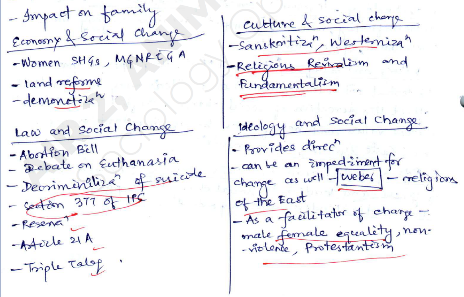 - Impact on family
Economy & Social Change
- Women SHGs, MGNREGA
- land reforms
- demonetizaⁿ
Law and Social Change
- Abortion Bill
- Debate on Euthanasia
- Decriminilizaⁿ of suicide
- Section 377 of IPC
- Resenaⁿ
- Article 21A
- Triple Talaq
Culture & Social change
- Sanskritizaⁿ, Westernizaⁿ
- Religious Revivalism and
Fundamentalism
Ideology and Social Change
- Provides direcⁿ
- can be an impediment for
change as well - Weber - religions
of the East
- As a facilitator of change -
male female equality, non-
violence, Protestantism